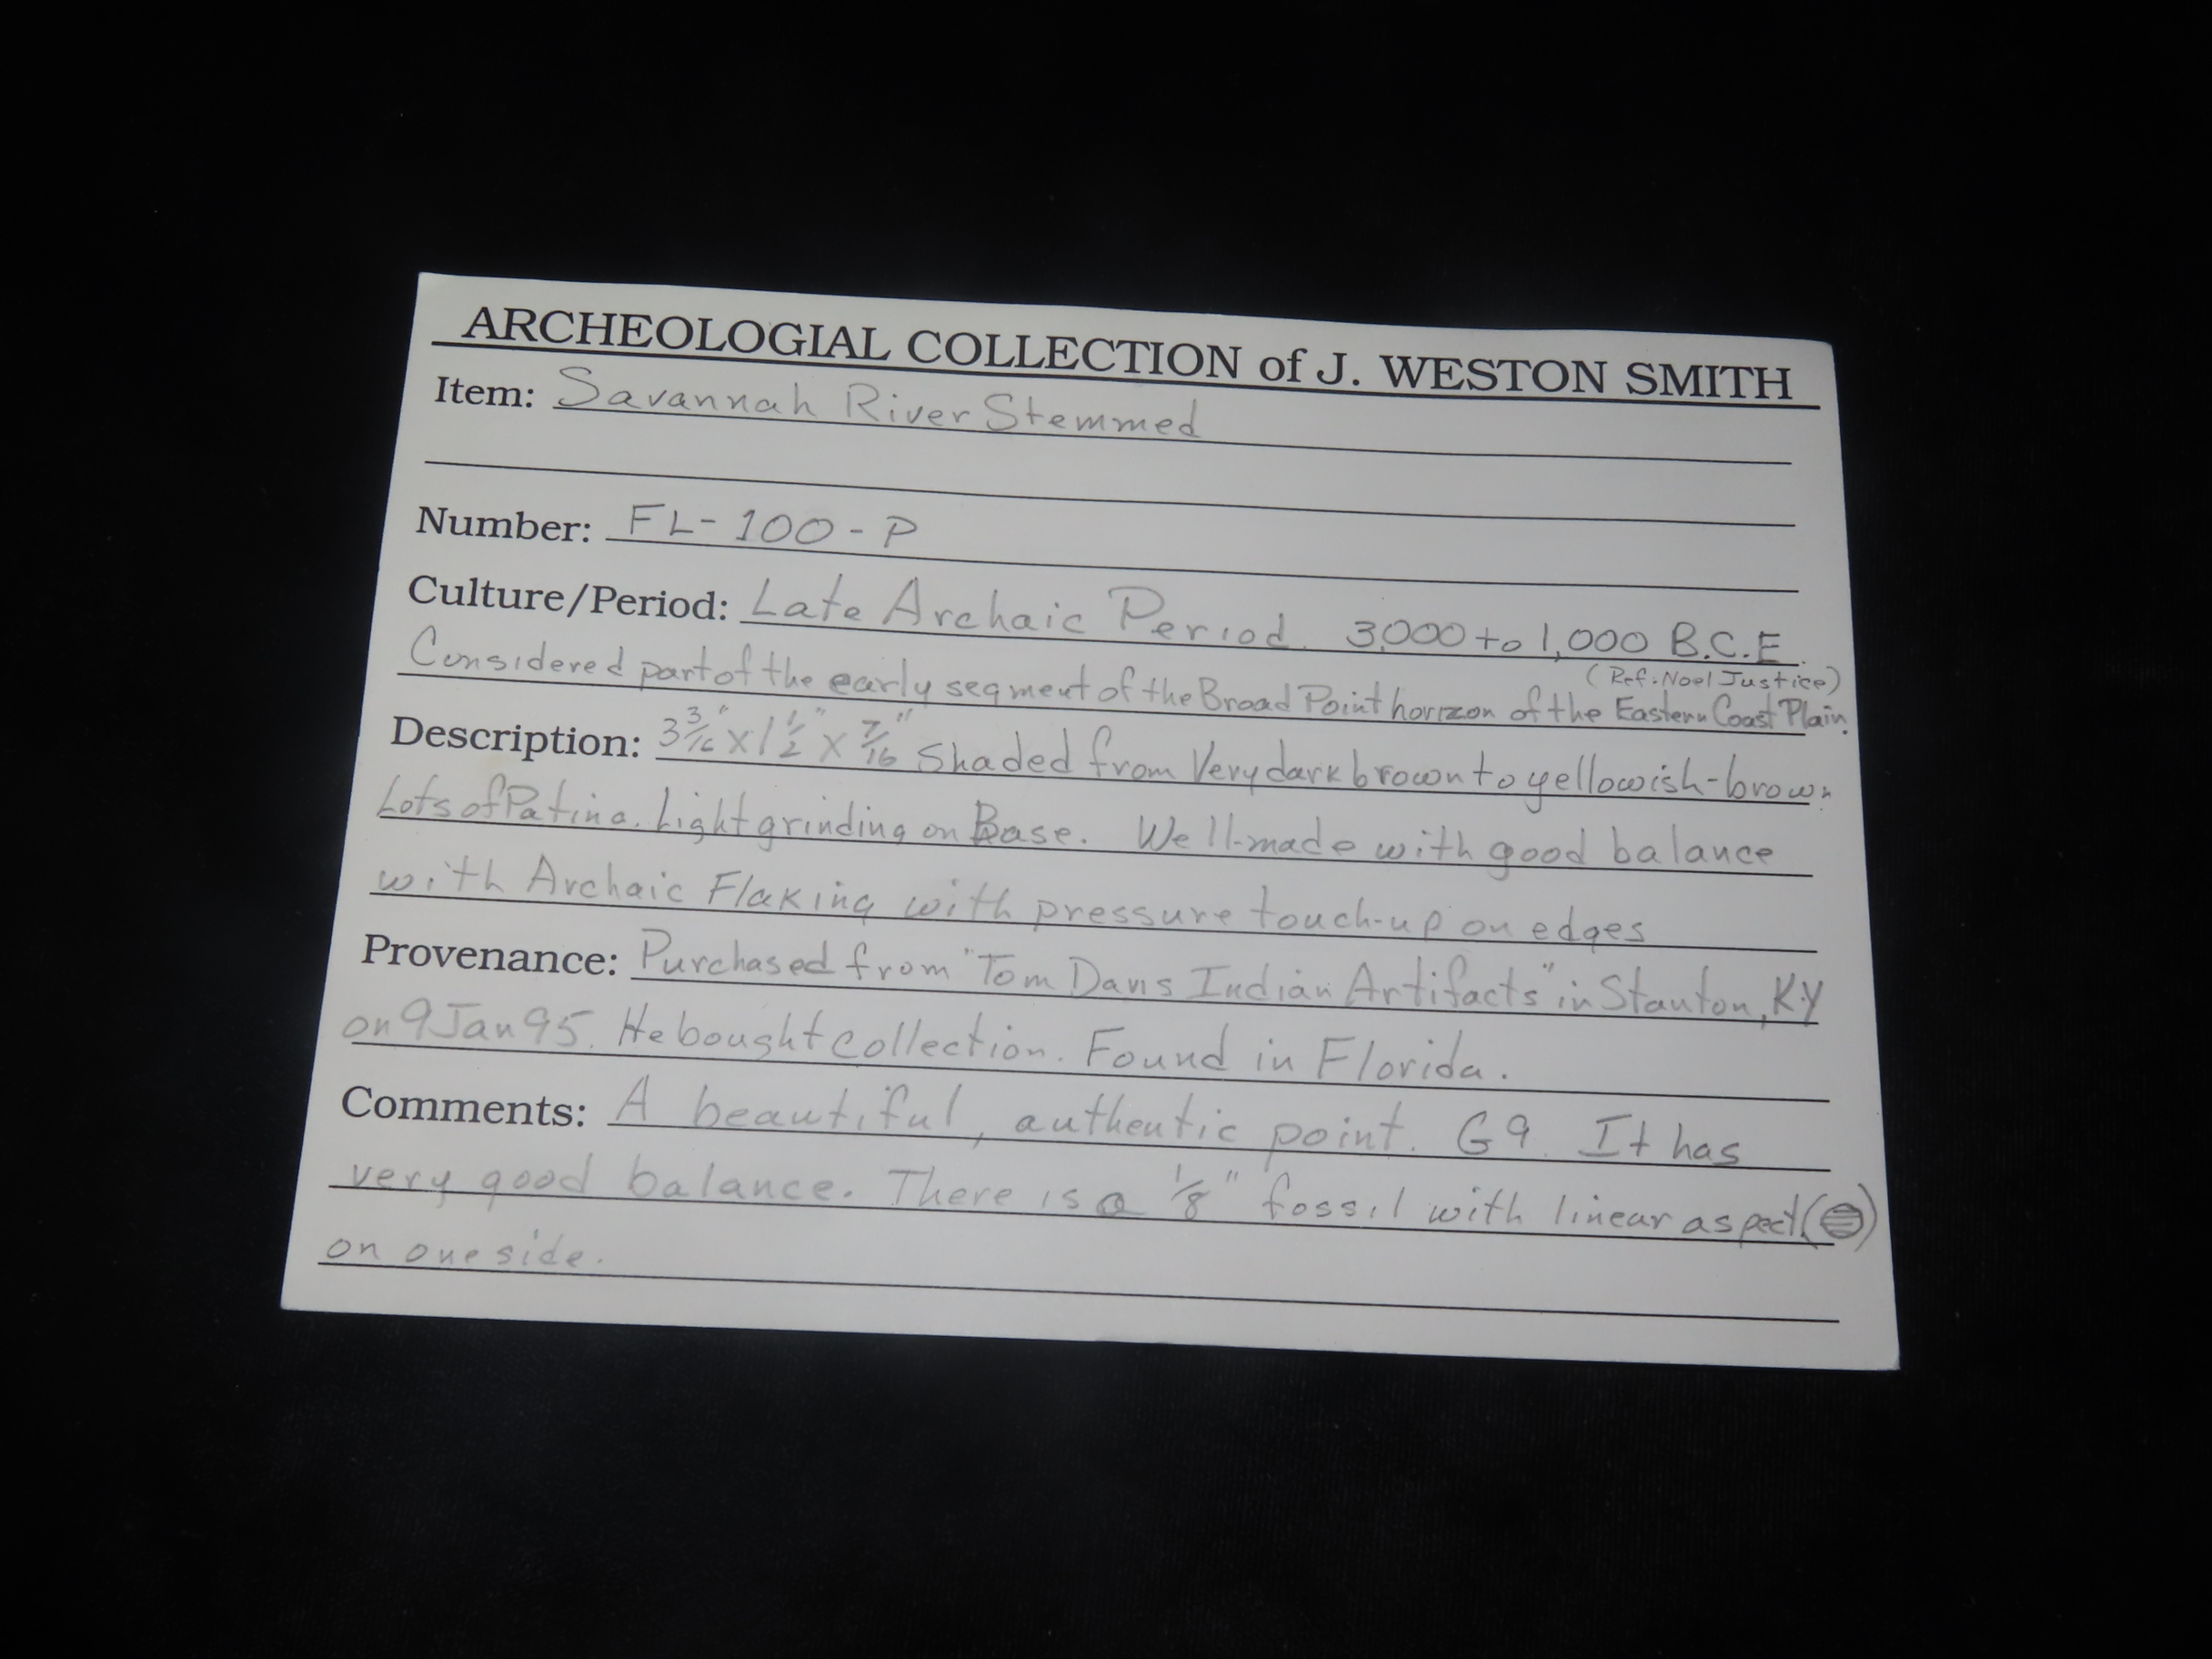 ARCHEOLOGIAL COLLECTION of J. WESTON SMITH
Item: Savannah River Stemmed
Number: FL-100-P
Culture/Period: Late Archaic Period. 3,000 to 1,000 B.C.E.
(Ref: Noel Justice)
Considered part of the early segment of the Broad Point horizon of the Eastern Coast Plain.
Description: 3 3/16" x 1 1/2" x 7/16" Shaded from Very dark brown to yellowish-brown.
Lots of Patina. Light grinding on Base. Well-made with good balance
with Archaic Flaking with pressure touch-up on edges
Provenance: Purchased from "Tom Davis Indian Artifacts" in Stanton, KY
on 9 Jan 95. He bought collection. Found in Florida.
Comments: A beautiful, authentic point. G9. It has
very good balance. There is a 1/8" fossil with linear aspect ( )
on one side.